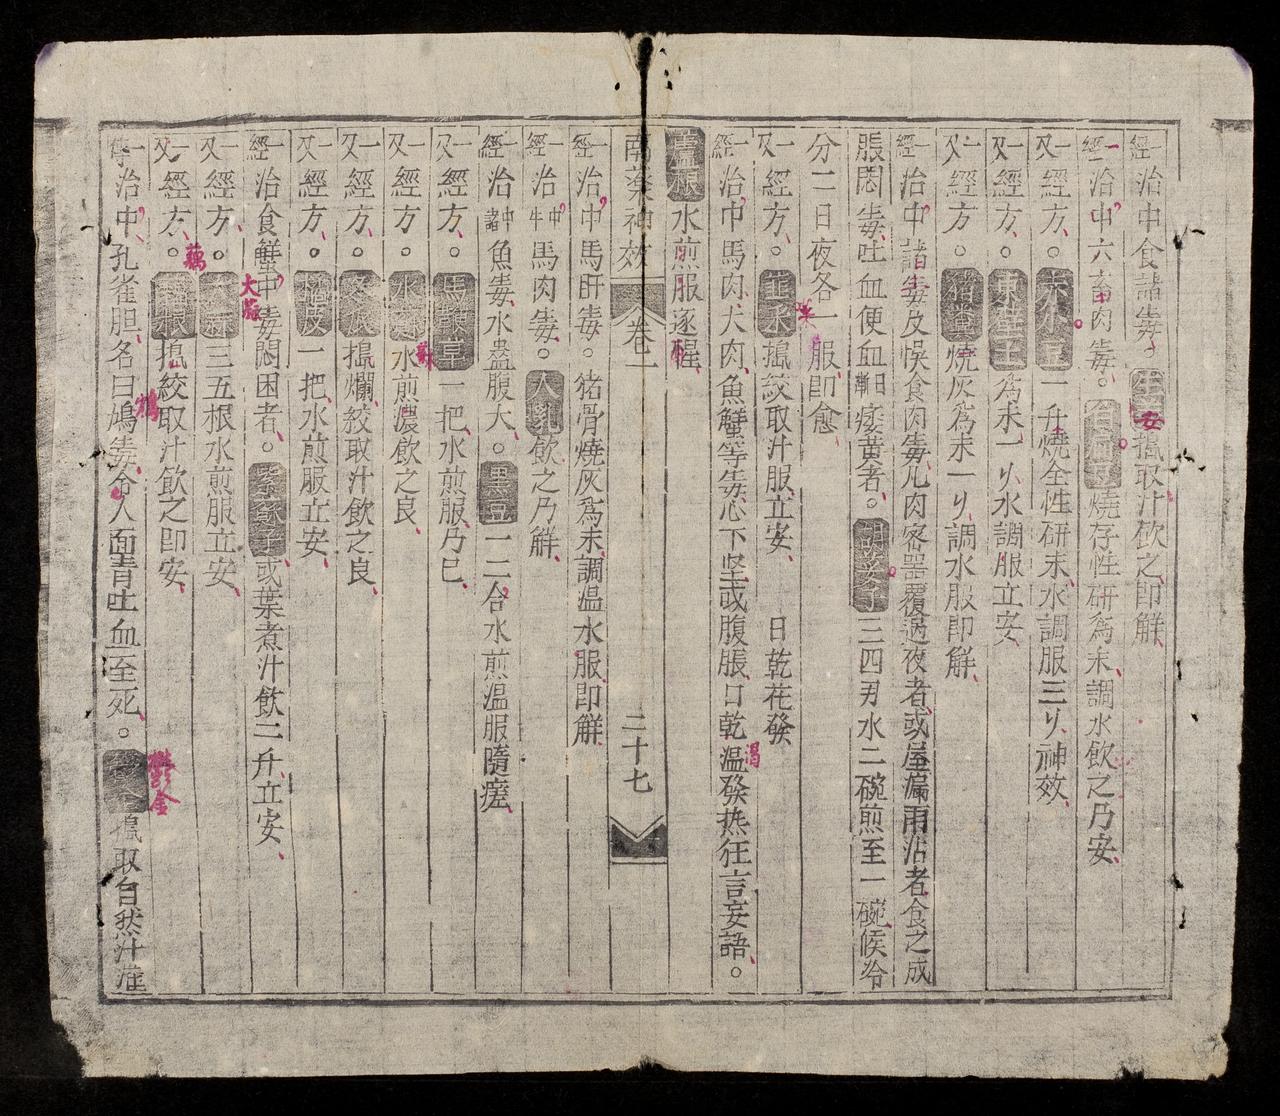 一經治中食諸毒。搗取汁飲之卽觧
一經治中六畜肉毒。白扁豆燒存性研爲末調水飲之乃安
又一經方。赤小豆一升燒全性研末水調服三𠂆神效
又一經方。東壁土爲末一𠂆水調服立安
又一經方。猪糞燒灰爲末一𠂆調水服即觧
一經治中諸毒及悞食肉毒凡肉宻器覆過夜者或屋漏雨沾者食之成
脹悶毒吐血便血漸日痿黃者。胡荽子三四刄水二碗煎至一碗候冷
分二日夜各一服即愈
又一經方。韮采搗絞取汁服立安 日乾花發
一經治中馬肉犬肉魚蟹等毒心下坚或腹脹口乾渴發热狂言妄語。
蘆根水煎服逐醒
南藥神效 卷一 二十七
一經治中馬肝毒。猪骨燒灰爲末調溫水服卽觧
一經治中牛馬肉毒。人乳飲之乃觧
一經治中諸魚毒水蠱腹大。黑豆一二合水煎溫服隨瘥
又一經方。馬鞭草一把水煎服乃已
又一經方。水蘇水煎濃飲之良
又一經方。冬瓜搗爛絞取汁飲之良
又一經方。皮一把水煎服立安
一經治食蟹中毒悶困者。紫蘇子或葉煮汁飲二升立安
又一經方。大蒜三五根水煎服立安
又一經方。藕根搗絞取汁飲之即安
一經治中孔雀胆名曰鴆毒令人面青吐血至死。鬱金搗取自然汁灌